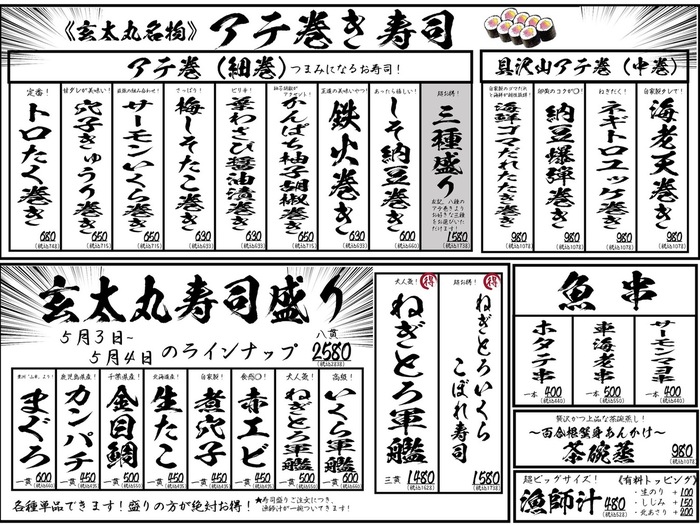 《玄太丸名物》アテ巻き寿司
アテ巻（細巻）つまみになるお寿司！
具沢山アテ巻（中巻）
定番！
トロたく巻き
680
(税込748)
甘ダレが美味い！
穴子きゅうり巻き
650
(税込715)
サーモンいくら巻き
650
(税込715)
さっぱり！
梅しそたこ巻き
630
(税込693)
ピリ辛！
葉わさび醤油漬巻き
630
(税込693)
柚子胡椒がアクセント！
かんぱち柚子胡椒巻き
650
(税込715)
王道の美味いやつ！
鉄火巻き
630
(税込693)
あったら嬉しい！
しそ納豆巻き
600
(税込660)
超お得！
三種盛り
左記、八種のアテ巻きよりお好きな三種をお選びいただけます！
1580
(税込1738)
自家製のゴマだれと海鮮が相性抜群！
海鮮ゴマだれたたき巻き
980
(税込1078)
卵黄のコクが◎！
納豆爆弾巻き
980
(税込1078)
ねぎだく！
ネギトロユッケ巻き
980
(税込1078)
自家製タレで！
海老天巻き
980
(税込1078)
玄太丸寿司盛り
5月3日~
5月4日のラインナップ
八貫
2580
(税込2838)
まぐろ
一貫 600
(税込660)
鹿児島県産！
カンパチ
一貫 450
(税込495)
千葉県産！
金目鯛
一貫 500
(税込550)
北海道産！
生たこ
一貫 450
(税込495)
自家製！
煮穴子
一貫 450
(税込495)
食感◎！
赤エビ
一貫 450
(税込495)
大人気！
ねぎとろ軍艦
一貫 500
(税込550)
高級！
いくら軍艦
一貫 600
(税込660)
各種単品できます！盛りの方が絶対お得！
★寿司盛りご注文につき、
漁師汁が一椀ついてきます！
得
大人気！
ねぎとろ軍艦
三貫 1480
(税込1628)
得
超お得！
ねぎとろいくら
こぼれ寿司
1580
(税込1738)
魚串
ホタテ串
一本 400
(税込440)
車海老串
一本 500
(税込550)
サーモンマヨ串
一本 400
(税込440)
贅沢かつ上品な茶碗蒸し！
~百合根蟹身あんかけ~
茶碗蒸
980
(税込1078)
超ビッグサイズ！
漁師汁
480
(税込528)
(有料トッピング)
・生のり +100
・しじみ +150
・北あさり +200